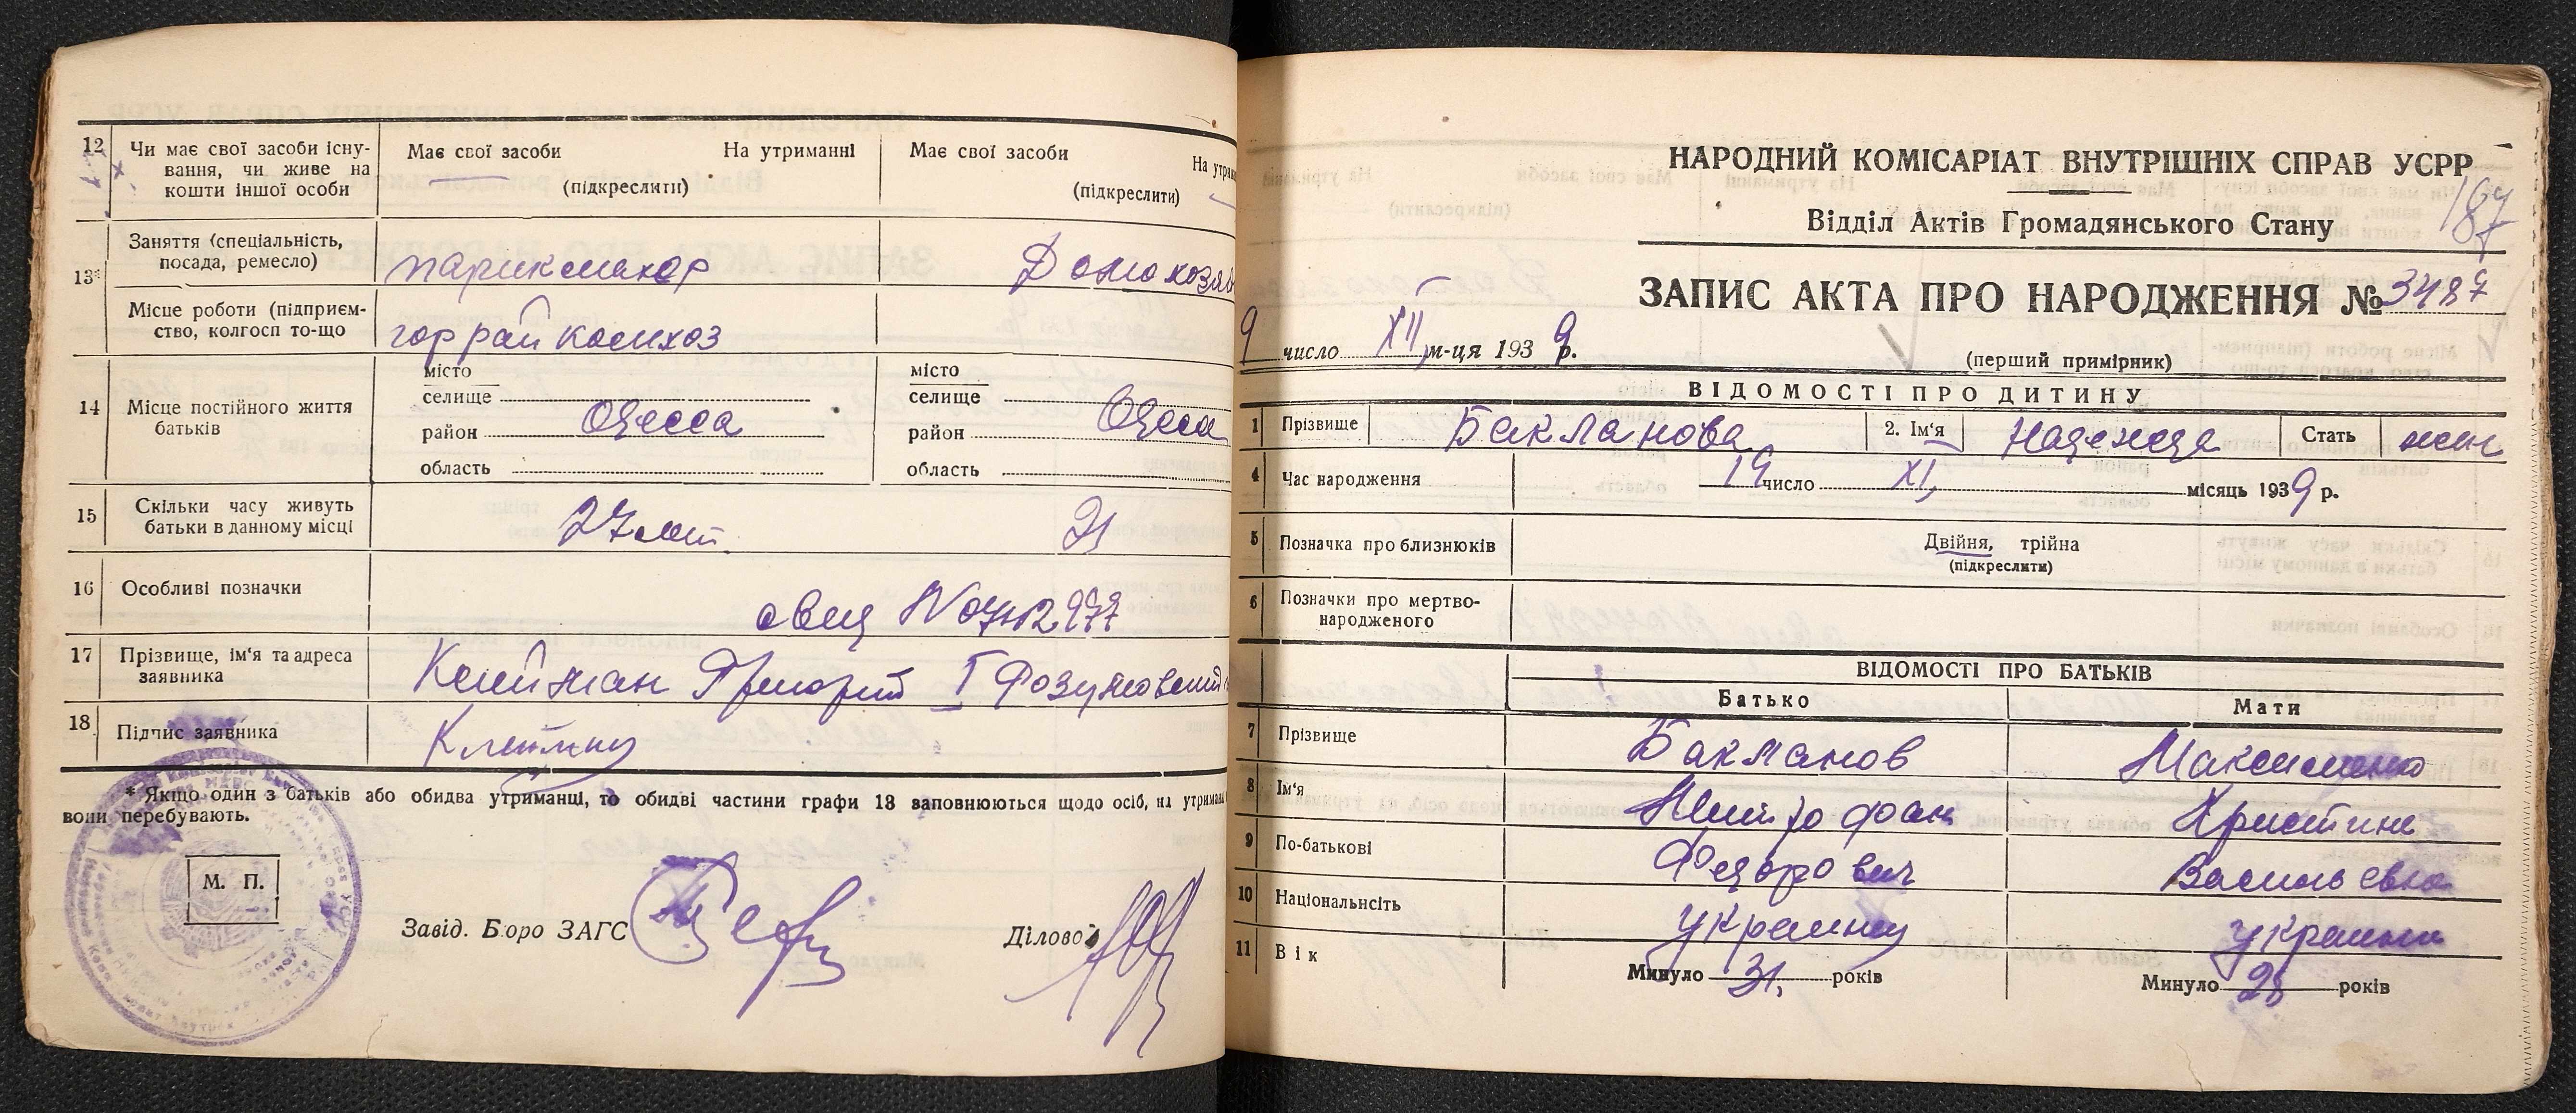 12 Чи має свої засоби існу-
вання, чи живе на
кошти іншої особи
Має свої засоби На утриманні
(підкреслити)
Має свої засоби На утрим
(підкреслити)
13* Заняття (спеціальність,
посада, ремесло)
парикмахер
Домохозяй
Місце роботи (підприєм-
ство, колгосп то-що
14 Місце постійного життя
батьків
місто
селище
район Одесса
область
місто
селище
район Одесса
область
15 Скільки часу живуть
батьки в данному місці
27 лет
21
16 Особливі позначки
17 Прізвище, ім'я та адреса
заявника
Клейман Григорий I
18 Підпис заявника
* Якщо один з батьків або обидва утриманці, то обидві частини графи 13 заповнюються щодо осіб, на утриман
вони перебувають.
М. П.
Завід. Бюро ЗАГС
Діловод
НАРОДНИЙ КОМІСАРІАТ ВНУТРІШНІХ СПРАВ УСРР
Відділ Актів Громадянського Стану
ЗАПИС АКТА ПРО НАРОДЖЕННЯ № 3487
9 число XII м-ця 1939 р.
(перший примірник)
ВІДОМОСТІ ПРО ДИТИНУ
1 Прізвище Бакланова 2. Ім'я Надежда Стать жен
4 Час народження 19 число XI, місяць 1939 р.
5 Позначка про близнюків Двійня, трійна
(підкреслити)
6 Позначки про мертво-
народженого
ВІДОМОСТІ ПРО БАТЬКІВ
Батько Мати
7 Прізвище Бакланов Максименко
8 Ім'я Митрофан Христина
9 По-батькові Федорович Васильевна
10 Національність украинец украинка
11 Вік Минуло 31, років Минуло 28 років